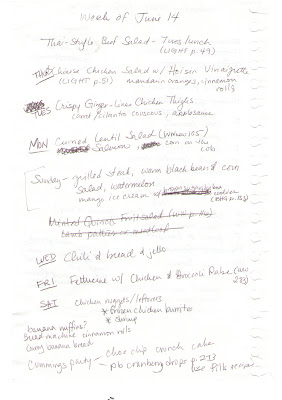 Week of June 14
Thai-Style Beef Salad - Tues lunch
(LIGHT p.49)
THURS Chinese Chicken Salad w/ Hoisin Vinaigrette
(LIGHT p.51) mandarin oranges, cinnamon
rolls
TUES Crispy Ginger-Lime Chicken Thighs
corn/cilantro couscous, applesauce
MON Curried Lentil Salad
Salmon, corn on the
cob
Sunday - grilled steak, warm black bean & corn
salad, watermelon
mango ice cream w/ cookies
Minted Quinoa Fruit Salad
Lamb patties or meatloaf
WED Chili & bread & jello
FRI Fettucine w/ Chicken & Broccoli Rabe
SAT chicken nuggets/leftovers
* frozen chicken burritos
* shrimp
banana muffins?
Bread machine cinnamon rolls
banana bread
Cummings party - choc chip crunch cake
pb cranberry drops p.233